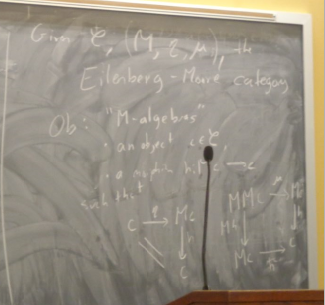 Given 𝒞, (M, η, μ), the
Eilenberg-Moore category
Ob: "M-algebras"
• an object c∈𝒞,
• a morphism h: Mc → c
such that
c →η Mc
↓h
c
MMc →μ Mc
Mh ↓ ↓h
Mc →h c